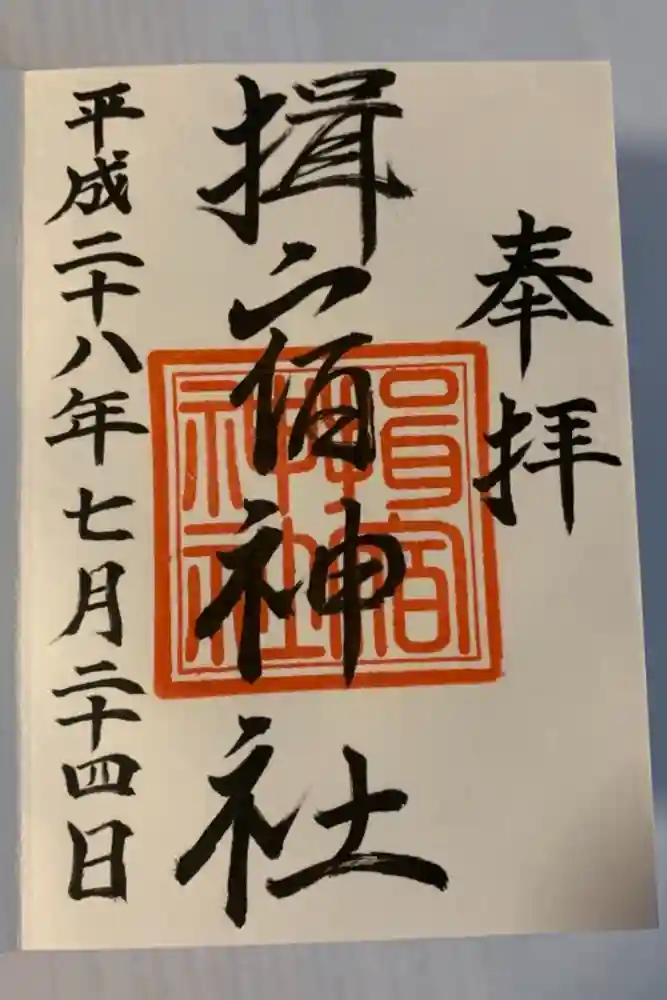 奉拝
揖宿神社
揖宿神社
平成二十八年七月二十四日